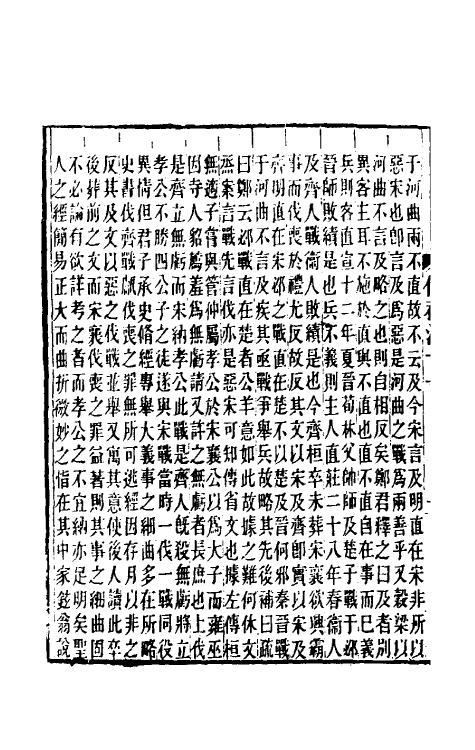 于河曲兩不直故不云及今宋言及明直在宋非所以
惡宋也即言及爲惡是河曲之戰爲兩善乎又穀梁以
河曲不言及略之也則自相反矣鄭君釋之曰及者别
異客主耳不施於直與不直也直不直自在事而已義
兵則客直宣十二年夏晉荀林父帥師及楚子戰于邲
晉師敗績是也兵不義則主人直莊二十八年春衞人
及齊人戰衞人敗績是也今齊桓卒未葬宋襄欲興霸
事而伐喪於禮尤反故反其文以宋及齊卽實以宋及
齊明直在宋邲之戰直在楚不以楚及晉何邪秦晉戰
于河曲不言及疾其亟戰爭舉兵故略其先後補曰疏
曰鄭云邲戰直在楚者公羊意如此故據之難何休文
烝案言戰先言伐亦是惡宋可知傳省文也據左傳桓
無適子嘗與管仲屬孝公於宋襄公以爲大子而雍巫
因寺人貂薦羞爲無虧請又許之無虧者長庶也上伐
是齊立無虧而宋納孝公此戰是齊人旣殺無虧將立
孝公不勝四公子之徒遂與宋戰當時一伐一戰同役
異情但君子承史脩經專舉大義事之細曲多在所略
史書伐齊戰甗伐喪之罪無所可逃經因存月以非之
反其及文以惡之伐戰並舉又寓其意使後人讀此卒
後葬前之文而宋襄伐喪之罪益著則其事之細曲固
不必論有欲詳考之者而孝公之不宜納亦足明矣聖
人之經簡易正大而曲折微妙之指在其中家鉉翁說